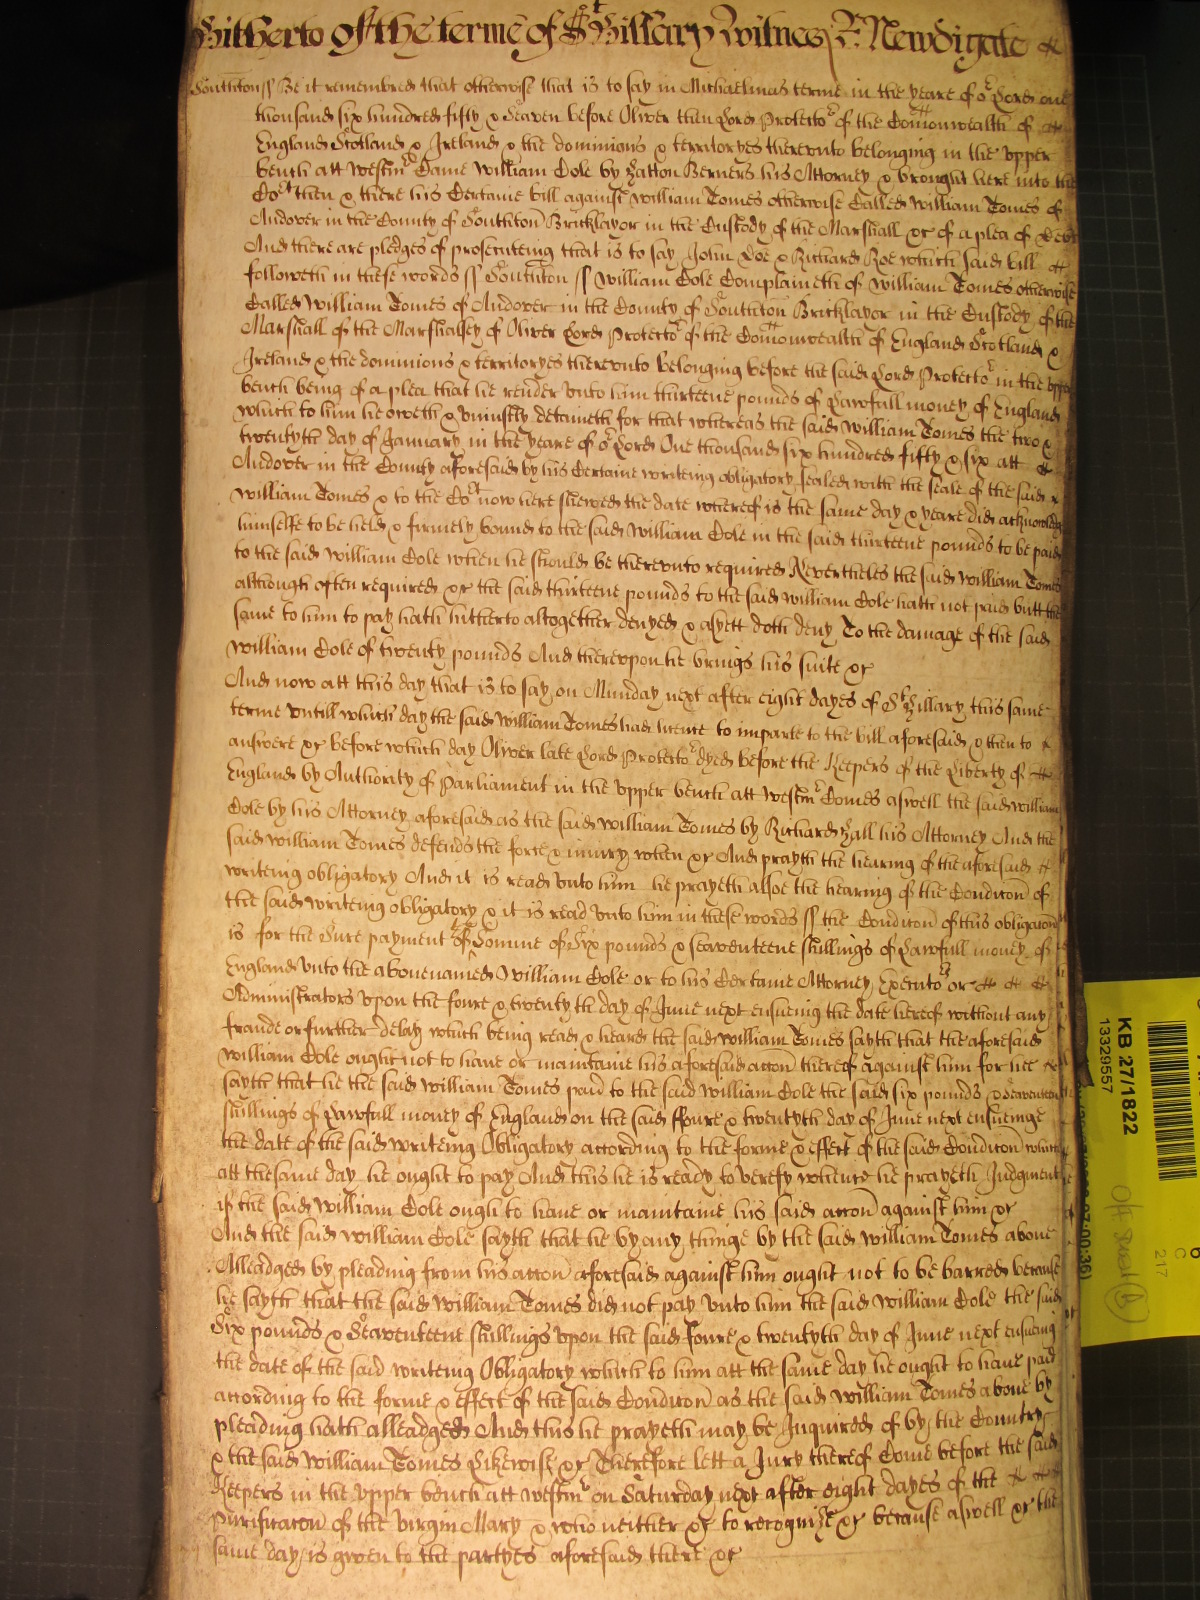 Hitherto of the terme of St Hillary witnes R: Newdigate
Southton ss Be it remembred that otherwise that is to say in Michaelmas terme in the yeare of or Lord one
thousand six hundred fifty & Seaven before Oliver then Lord Protector of the Comonwealth of
England Scotland & Ireland & the dominions & territoryes therevnto belonging in the vpper
bench att Westmr Came William Cole by Hatton Berners his Attorney & brought here into the
Cort then & there his Certaine bill against William Tomes otherwise Called William Tomes of
Andover in the County of Southton Bricklayor in the Custody of the Marshall &c of a plea of Debt
And there are pledges of prosecuteing that is to say John Doe & Richard Roe which said bill
followeth in these words ss Southton ss William Cole Complaineth of William Tomes otherwise
Called William Tomes of Andover in the County of Southton Bricklayor in the Custody of the
Marshall of the Marshalsey of Oliver Lord Protector of the Comonwealth of England Scotland &
Ireland & the dominions & territoryes therevnto belonging before the said Lord Protector in the vpper
bench being of a plea that he render vnto him thirteene pounds of Lawfull money of England
which to him he oweth & vniustly detaineth for that whereas the said William Tomes the two &
twentyth day of January in the yeare of or Lord One thousand six hundred fifty & six att
Andover in the County aforesaid by his Certaine writeing obligatory sealed with the seale of the said
William Tomes & to the Cort now here shewed the date whereof is the same day & yeare did acknowledg
himselfe to be held & firmely bound to the said William Cole in the said thirteene pounds to be paid
to the said William Cole when he should be therevnto required Nevertheles the said William Tomes
although often required &c the said thirteene pounds to the said William Cole hath not paid butt the
same to him to pay hath hitherto altogether denyed & as yett doth deny To the damage of the said
William Cole of twenty pounds And therevpon he brings his suite &c
And now att this day that is to say on Munday next after eight dayes of St Hillary this same
terme vntill which day the said William Tomes had licence to imparle to the bill aforesaid & then to
answere &c before which day Oliver late Lord Protector dyed before the Keepers of the Liberty of
England by Authority of Parliament in the vpper bench att Westmr Comes aswell the said William
Cole by his Attorney aforesaid as the said William Tomes by Richard Hall his Attorney And the
said William Tomes defends the force & iniury when &c And prayth the hearing of the aforesaid
writeing obligatory And it is read vnto him he prayeth allsoe the hearing of the Conditon of
the said writeing obligatory & it is read vnto him in these words ss the Conditon of this obligaton
is for the Sure payment of Somme of Six pounds & seaventeene shillings of Lawfull money of
England vnto the abouenamed William Cole or to his Certaine Attorney Executors or
Administrators vpon the foure & twentyth day of June next ensueing the date hereof without any
fraude or further delay which being read & heard the said William Tomes sayth that the aforesaid
William Cole ought not to haue or maintaine his aforesaid accon thereof against him for hee
sayth that he the said William Tomes paid to the said William Cole the said six pounds & seaventeen
shillings of Lawfull money of England on the said ffoure & twentyth day of June next ensueinge
the date of the said writeing Obligatory according to the forme & effect of the said Conditon which
att the same day he ought to pay And this he is ready to verefy whence he prayeth Judgment
if the said William Cole ought to haue or maintaine his said accon against him &c
And the said William Cole sayth that he by any thinge by the said William Tomes aboue
Alleadged by pleading from his accon aforesaid against him ought not to be barred because
he sayth that the said William Tomes did not pay vnto him the said William Cole the said
Six pounds & Seaventeene shillings vpon the said foure & twentyth day of June next ensueing
the date of the said writeing Obligatory which to him att the same day he ought to haue paid
according to the forme & effect of the said Conditon as the said William Tomes aboue by
pleading hath alleadged And this he prayeth may be Inquired of by the Country
& the said William Tomes Likewise &c Therefore lett a Jury thereof Come before the said
Keepers in the vpper bench att Westmr on Saturday next after eight dayes of the
Purificaton of the virgin Mary & who neither &c to recognize &c because aswell &c the
same day is given to the partyes aforesaid there &c
KB 27/1822
13329557
217